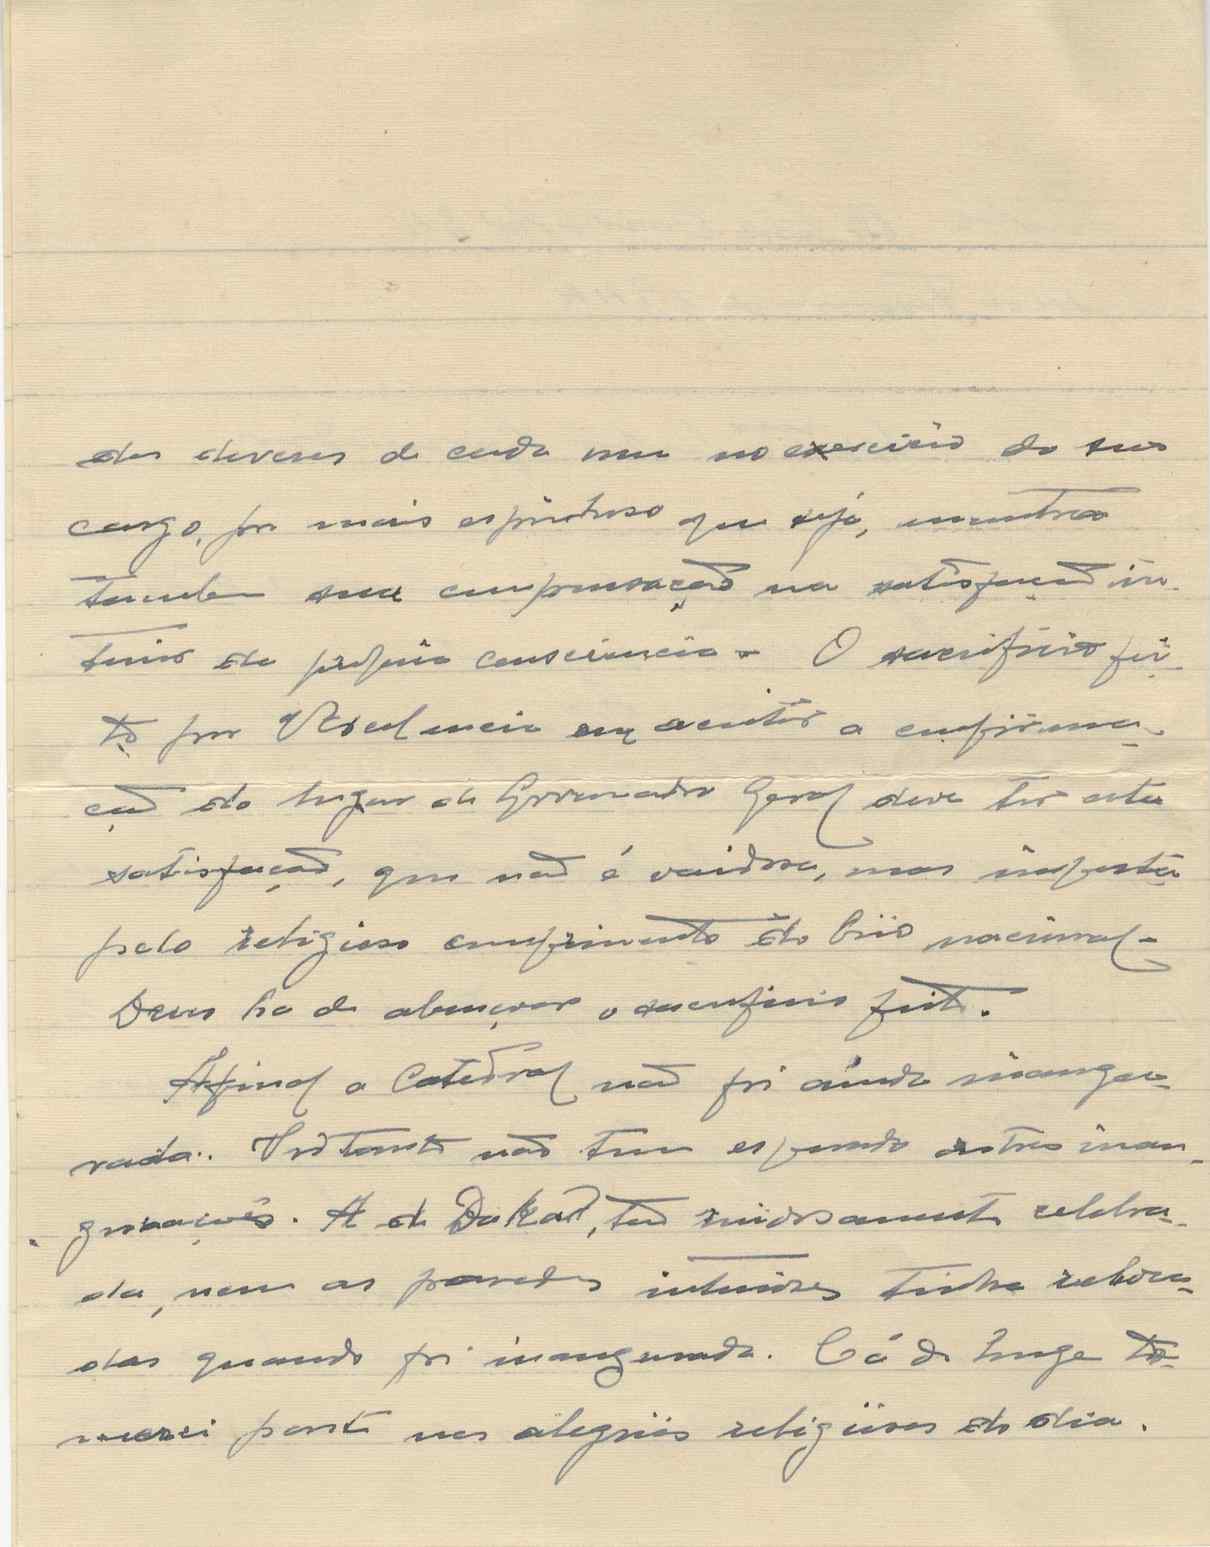 dos deveres de cada um no exercicio do seu
cargo, por mais espinhoso que seja, encontra
tambem sua compensação na satisfação in-
tima da propria consciencia. O sacrificio fei-
to por V Excelencia em aceitar a confirma-
ção do lugar de Governador Geral deve ter esta
satisfação, que não é vaidosa, mas imposta
pelo religioso cumprimento do brio nacional.
Deus ha de abençoar o sacrificio feito.
Afinal a Catedral não foi ainda inaugu-
rada. Portanto não tem esperado outras inau-
gurações. A de Dakar, tão ruidosamente celebra-
da, nem as paredes interiores tinha reboca-
das quando foi inaugurada. Cá de longe to-
marei parte nas alegrias religiosas do dia.